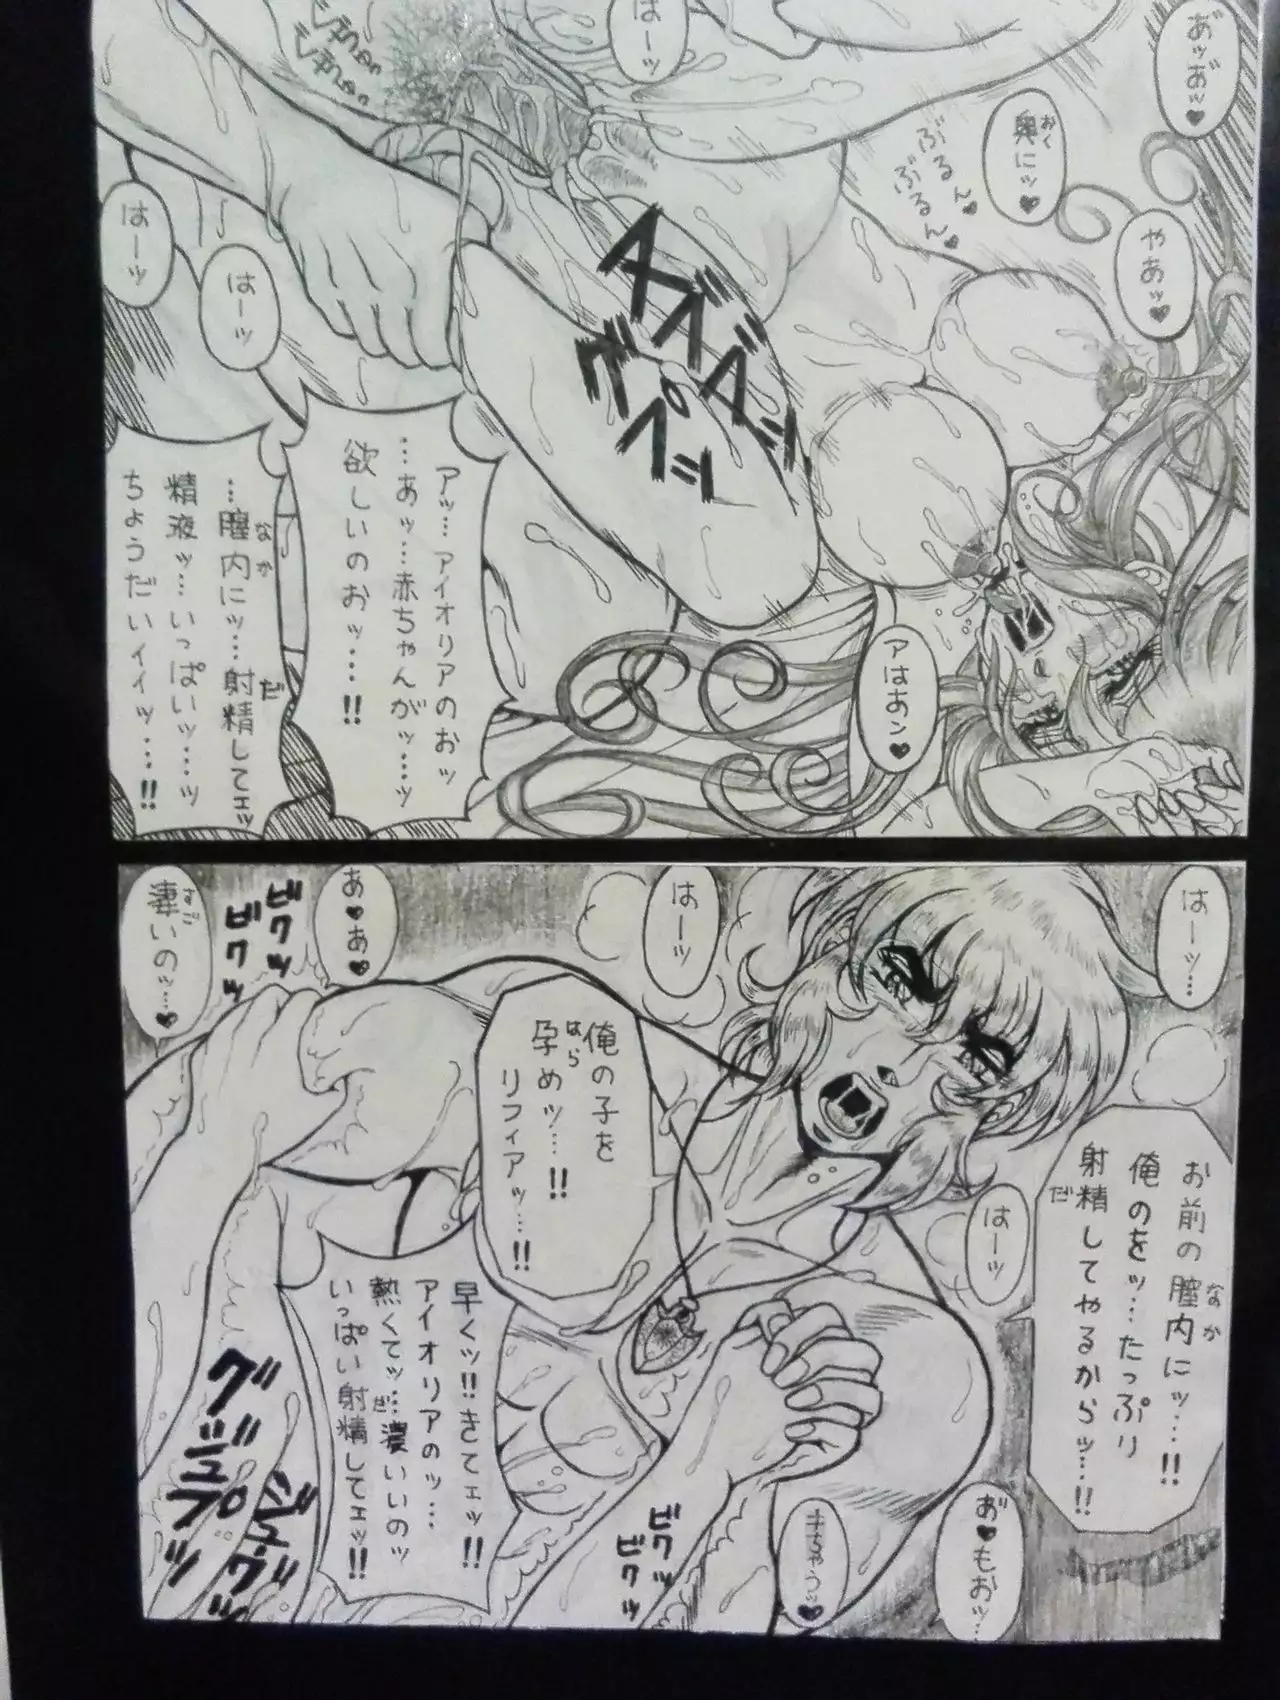 あ゛ッお゛ッ♥
奥にッ♥
おく
ぶるん♥
ぶるん♥
やあッ♥
はーッ
はーッ
はーッ
アはあン♥
グペッ
アッ…アイオリアのおッ
…あッ…赤ちゃんがッ…ッ
欲しいのおッ…!!
…膣内にッ…射精してェッ
なか
だ
精液ッ…いっぱいッ…ッ
ちょうだいィィッ…!!
はーッ…
はーッ
あ♥あ♥
ビクッ
ビクッ
お前の膣内にッ…!!
なか
俺のをッ…たっぷり
射精してやるからッ…!!
だ
俺の子を
孕めッ…!!
はら
リフィアッ…!!
はーッ
早くッ!!きてェッ!!
アイオリアのッ…
熱くてッ…濃いいのッ
いっぱい射精してェッ!!
だ
お゛♥もおッ…
ビクッ
ビクッ